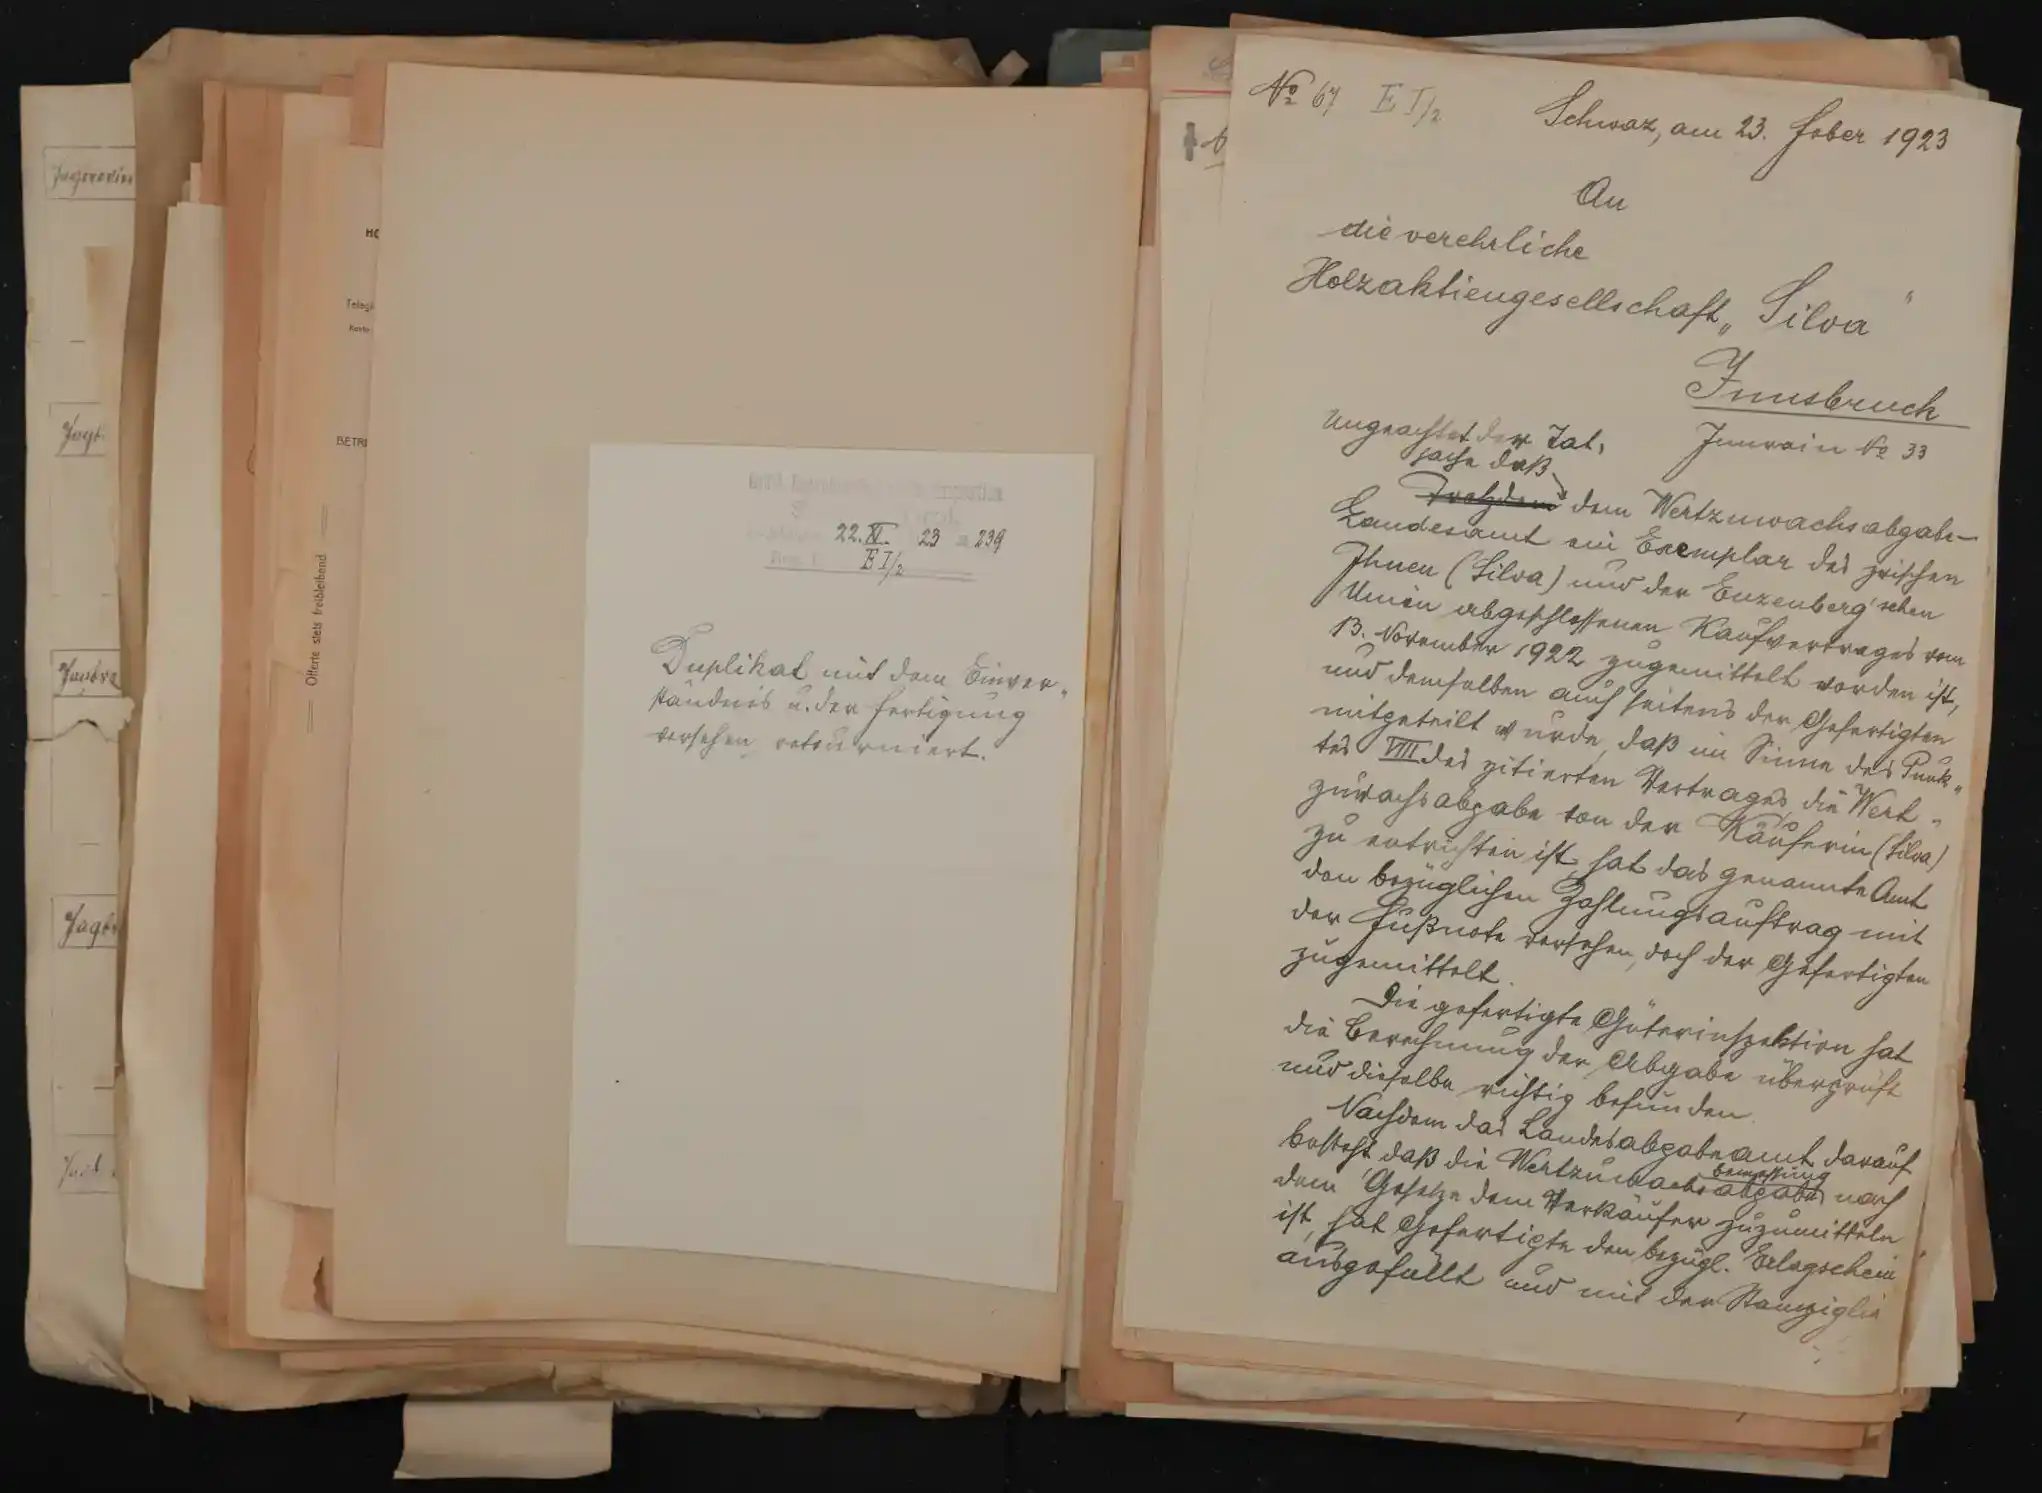 Jagdrevier
HO
Telegr
Konto
BETRI
Offerte stets freibleibend
22. XI. 23 239
E I/2
Duplikat mit dem Einver-
ständnis u. der Fertigung
versehen retourniert.
No 67 E I/2
Schwaz, am 23. Feber 1923
An
die verehrliche
Holzaktiengesellschaft „Silva“
Innsbruck
Innrain No 33
Ungeachtet der Tat-
sache daß
Trotzdem dem Wertzuwachsabgabe-
Landesamt ein Exemplar des zwischen
Ihnen (Silva) und der Enzenberg'schen
Union abgeschlossenen Kaufvertrages vom
13. November 1922 zugemittelt worden ist,
und demselben auch seitens der Gefertigten
mitgeteilt wurde, daß im Sinne des Punk-
tes VIII des zitierten Vertrages die Wert-
zuwachsabgabe von der Käuferin (Silva)
zu entrichten ist, hat das genannte Amt
den bezüglichen Zahlungsauftrag mit
der Fußnote versehen, doch der Gefertigten
zugemittelt.
Die gefertigte Güterinspektion hat
die Berechnung der Abgabe überprüft
und dieselbe richtig befunden.
Nachdem das Landesabgabeamt darauf
besteht daß die Wertzuwachsabgabe nach
bemessung
dem Gesetze dem Verkäufer zuzumitteln
ist, hat Gefertigte den bezügl. Erlagschein
ausgefüllt und mit der Stampiglie